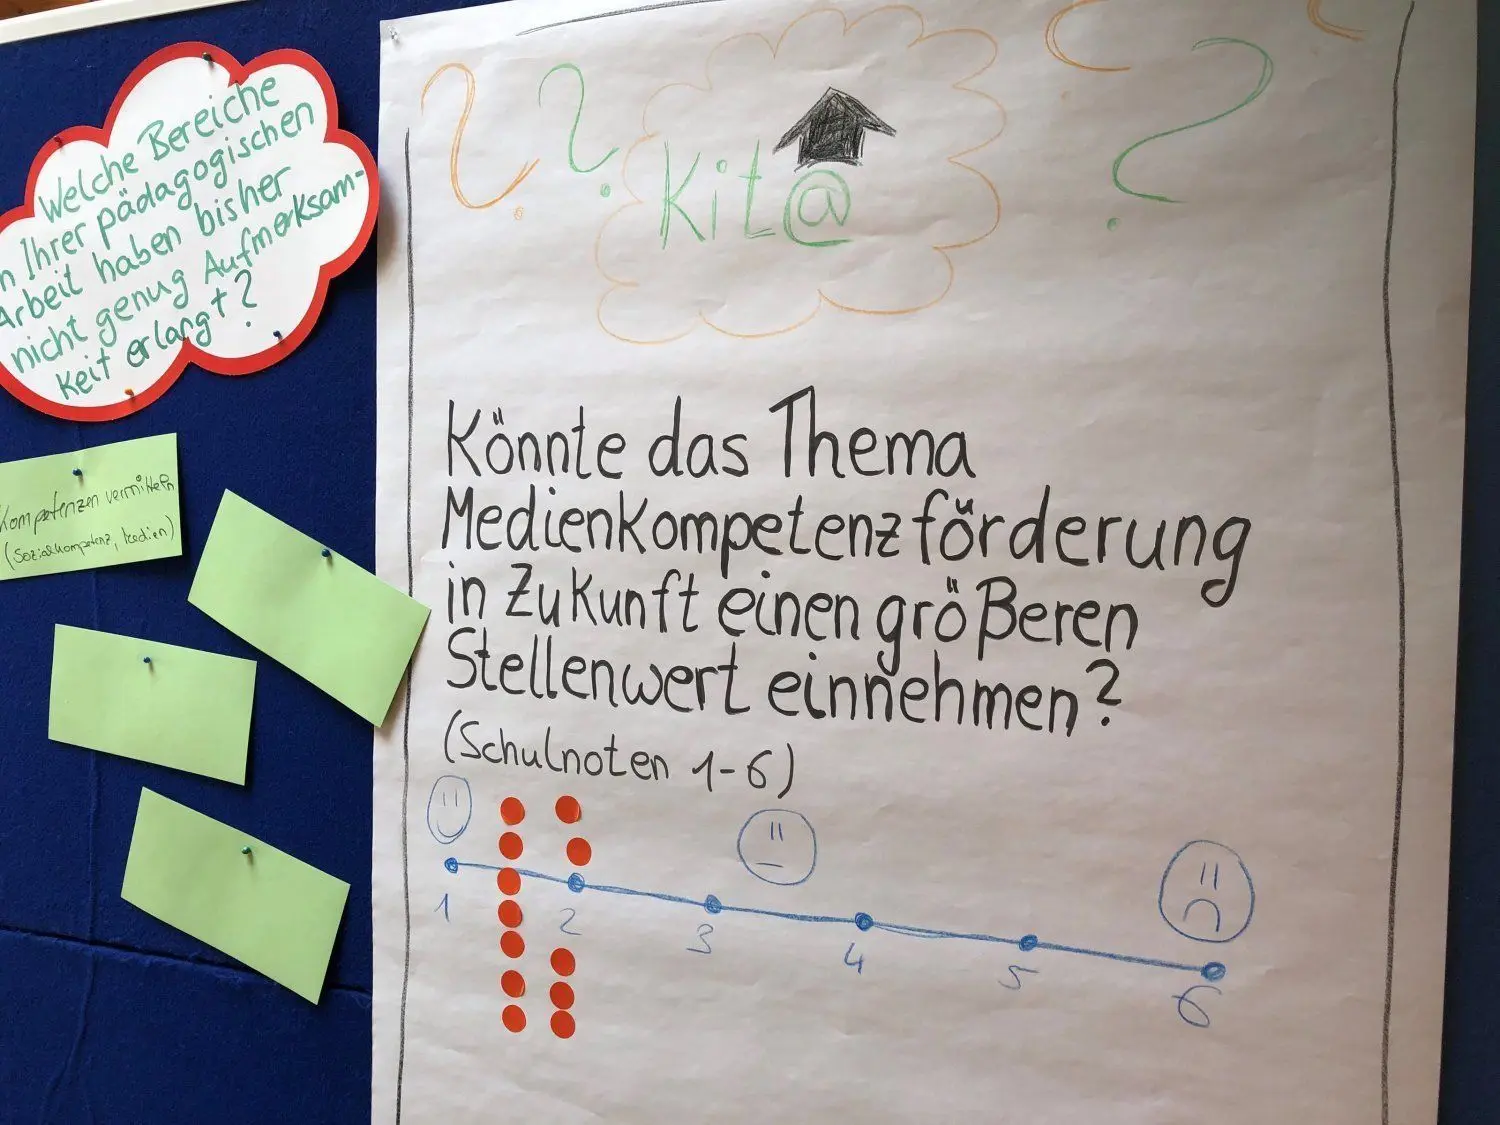 Welche Bereiche
in Ihrer pädagogischen
Arbeit haben bisher
nicht genug Aufmerksam-
keit erlangt?
Kompetenzen vermitteln
(Sozialkompetenz, Medien)
? ? ? ? ?
Kit@
Könnte das Thema
Medienkompetenzförderung
in Zukunft einen größeren
Stellenwert einnehmen?
(Schulnoten 1-6)
1 2 3 4 5 6